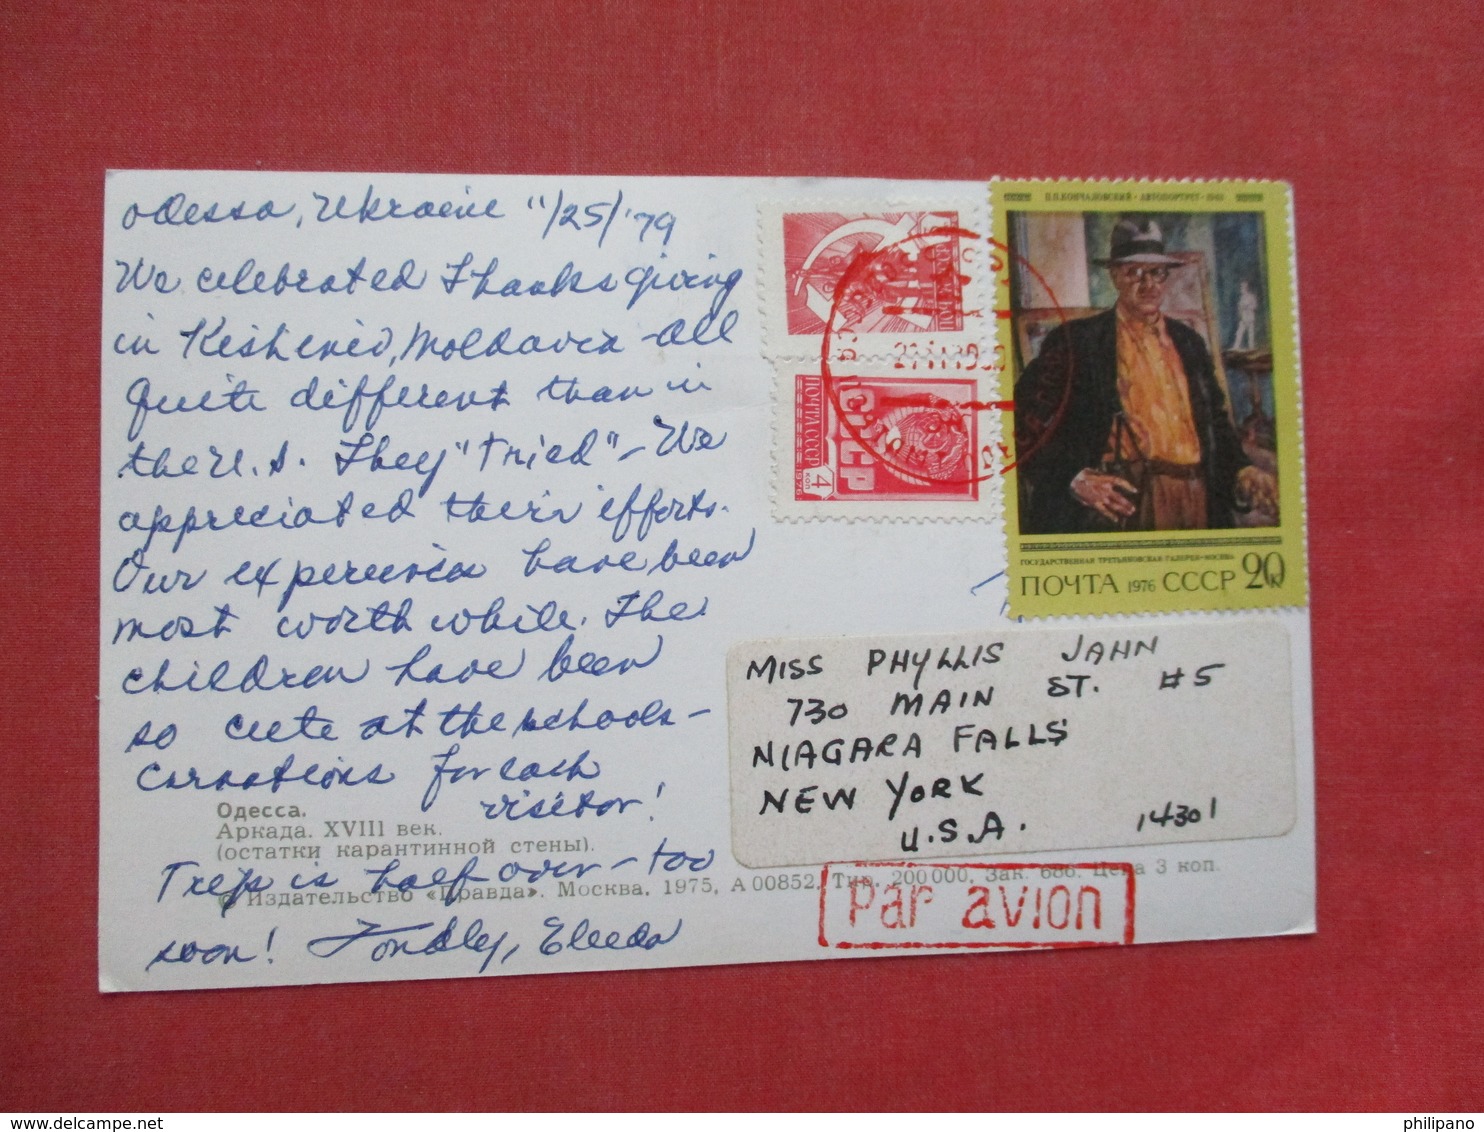 Odessa, Ukraine 11/25/'79
We celebrated Thanksgiving
in Keshenev, Moldavia - all
quite different than in
the U.S. They "tried" - We
appreciated their efforts.
Our experiences have been
most worth while. The
children have been
so cute at the schools -
carnations for each
visitor!
Trip is half over - too
soon! Fondly, Eleeda
Одесса.
Аркада. XVIII век.
(остатки карантинной стены).
© Издательство «Правда». Москва, 1975, А 00852, Тир. 200 000, Зак. 686. Цена 3 коп.
П.П.КОНЧАЛОВСКИЙ · АВТОПОРТРЕТ ·
ГОСУДАРСТВЕННАЯ ТРЕТЬЯКОВСКАЯ ГАЛЕРЕЯ · МОСКВА
ПОЧТА 1976 СССР 20к
ПОЧТА СССР
СССР
4 коп
1976
MISS PHYLLIS JAHN
730 MAIN ST. #5
NIAGARA FALLS
NEW YORK
U.S.A. 14301
Par avion
delcampe.net
philipano